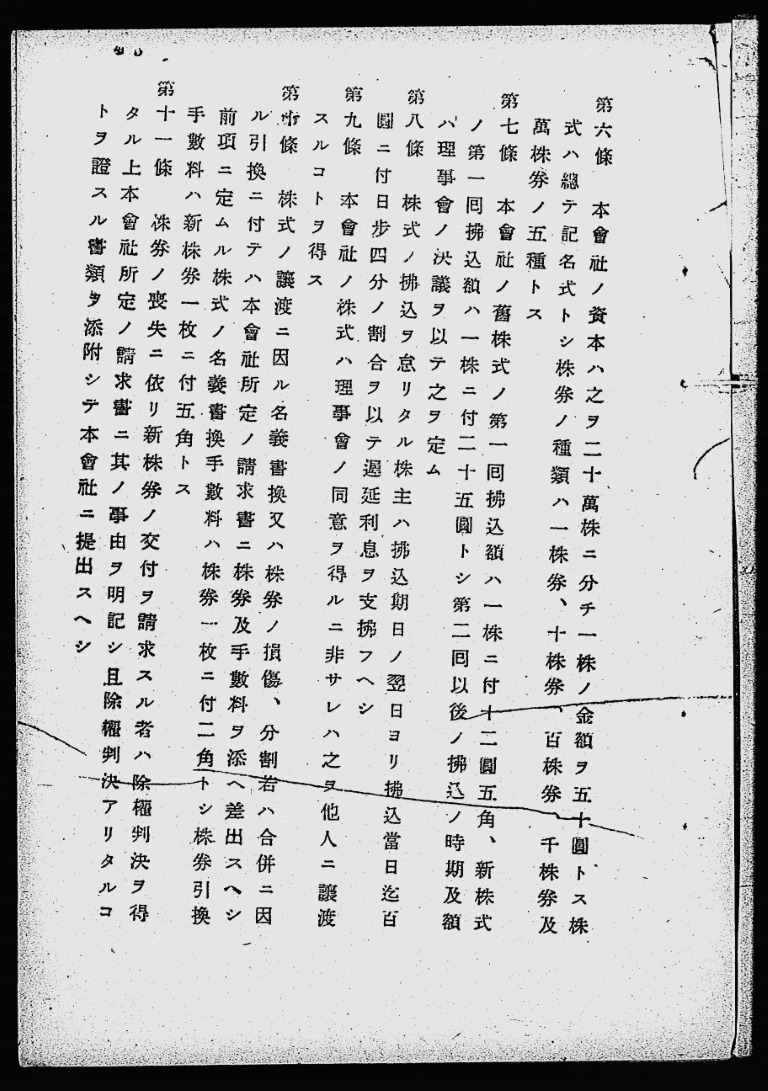 第六條　本會社ノ資本ハ之ヲ二十萬株ニ分チ一株ノ金額ヲ五十圓トス株
式ハ總テ記名式トシ株券ノ種類ハ一株券、十株券、百株券、千株券及
萬株券ノ五種トス
第七條　本會社ノ舊株式ノ第一囘拂込額ハ一株ニ付十二圓五角、新株式
ノ第一囘拂込額ハ一株ニ付二十五圓トシ第二囘以後ノ拂込ノ時期及額
ハ理事會ノ決議ヲ以テ之ヲ定ム
第八條　株式ノ拂込ヲ怠リタル株主ハ拂込期日ノ翌日ヨリ拂込當日迄百
圓ニ付日步四分ノ割合ヲ以テ遲延利息ヲ支拂フヘシ
第九條　本會社ノ株式ハ理事會ノ同意ヲ得ルニ非サレハ之ヲ他人ニ讓渡
スルコトヲ得ス
第十條　株式ノ讓渡ニ因ル名義書換又ハ株券ノ損傷、分割若ハ合併ニ因
ル引換ニ付テハ本會社所定ノ請求書ニ株券及手數料ヲ添ヘ差出スヘシ
前項ニ定ムル株式ノ名義書換手數料ハ株券一枚ニ付二角トシ株券引換
手數料ハ新株券一枚ニ付五角トス
第十一條　株券ノ喪失ニ依リ新株券ノ交付ヲ請求スル者ハ除權判決ヲ得
タル上本會社所定ノ請求書ニ其ノ事由ヲ明記シ且除權判決アリタルコ
トヲ證スル書類ヲ添附シテ本會社ニ提出スヘシ